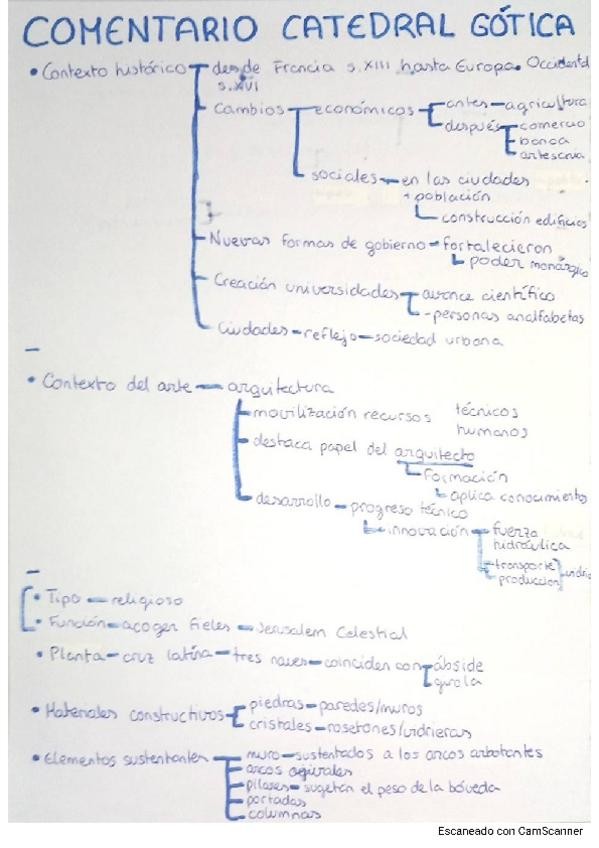 COMENTARIO CATEDRAL GÓTICA
• Contexto histórico desde Francia s.XIII hasta Europa Occidental
s.XVI
cambios económicos antes - agricultura
después comercio
banca
artesanía
sociales en las ciudades
+ población
construcción edificios
Nuevas formas de gobierno - fortalecieron
poder monárquico
Creación universidades avance científico
- personas analfabetas
Ciudades - reflejo - sociedad urbana
• Contexto del arte - arquitectura
movilización recursos técnicos
humanos
destaca papel del arquitecto
formación
aplica conocimientos
desarrollo - progreso técnico
innovación fuerza
hidráulica
transporte
producción
• Tipo - religioso
• Función - acoger fieles - Jerusalem Celestial
• Planta - cruz latina - tres naves - coinciden con ábside
girola
• Materiales constructivos piedras - paredes/muros
cristales - rosetones/vidrieras
• Elementos sustentantes muro - sustentados a los arcos arbotantes
arcos ojivales
pilares - sugetan el peso de la bóveda
portadas
columnas
Escaneado con CamScanner